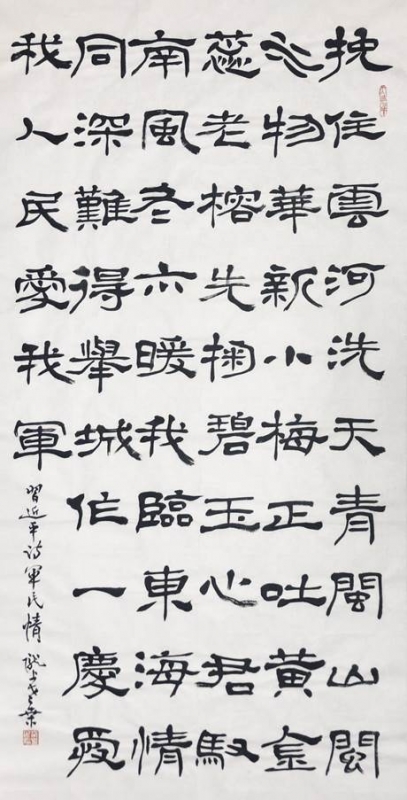 挽住雲河洗天青閩山閩
水物華新小梅正吐黃金
蕊老榕先掬碧玉心君馭
南風冬亦暖我臨東海情
同深難得舉城作一慶愛
我人民愛我軍
習近平诗軍民情